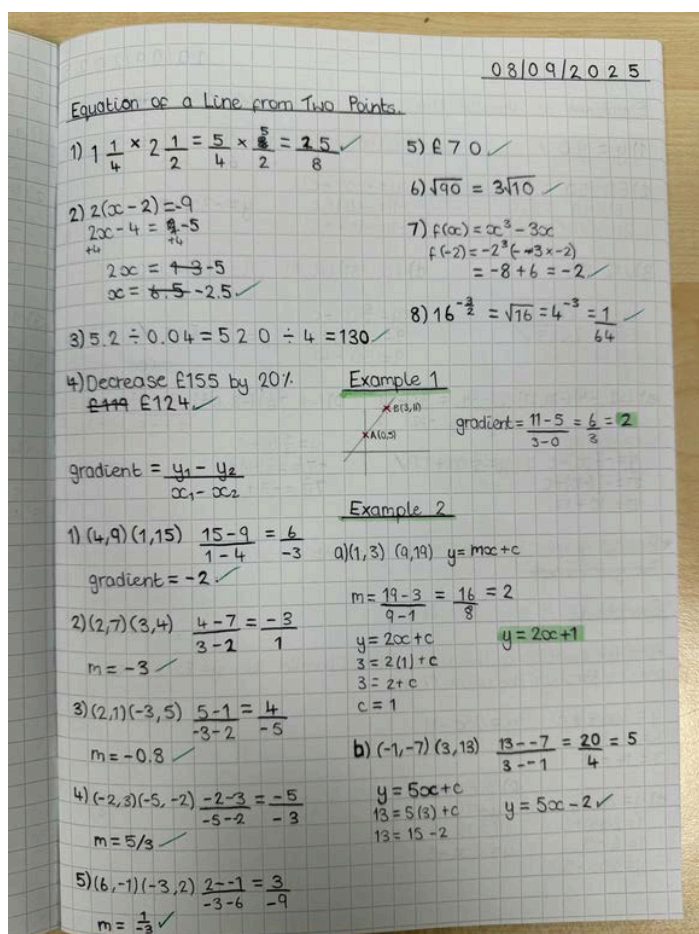 08/09/2025
Equation of a Line from Two Points.
1) 1 1/4 × 2 1/2 = 5/4 × 5/2 = 25/8 ✓
2) 2(x - 2) = -9
2x - 4 = -5
+4 +4
2x = 13 -5
x = 6.5 -2.5 ✓
3) 5.2 ÷ 0.04 = 520 ÷ 4 = 130 ✓
4) Decrease £155 by 20%
£119 £124 ✓
5) £70 ✓
6) √90 = 3√10 ✓
7) f(x) = x³ - 3x
f(-2) = -2³ (- -3 × -2)
= -8 + 6 = -2 ✓
8) 16^(-3/2) = √16 = 4^-3 = 1/64 ✓
Example 1
B(3,11)
A(0,5)
gradient = 11 - 5 / 3 - 0 = 6/3 = 2
gradient = y₁ - y₂ / x₁ - x₂
1) (4,9) (1,15) 15 - 9 / 1 - 4 = 6 / -3
gradient = -2 ✓
2) (2,7) (3,4) 4 - 7 / 3 - 2 = -3 / 1
m = -3 ✓
3) (2,1) (-3,5) 5 - 1 / -3 - 2 = 4 / -5
m = -0.8 ✓
4) (-2,3) (-5,-2) -2 - 3 / -5 - 2 = -5 / -3
m = 5/3 ✓
5) (6,-1) (-3,2) 2 - -1 / -3 - 6 = 3 / -9
m = 1/-3 ✓
Example 2
a) (1,3) (9,19) y = mx + c
m = 19 - 3 / 9 - 1 = 16 / 8 = 2
y = 2x + c y = 2x + 1
3 = 2(1) + c
3 = 2 + c
c = 1
b) (-1,-7) (3,13) 13 - -7 / 3 - -1 = 20 / 4 = 5
y = 5x + c
13 = 5(3) + c y = 5x - 2 ✓
13 = 15 - 2